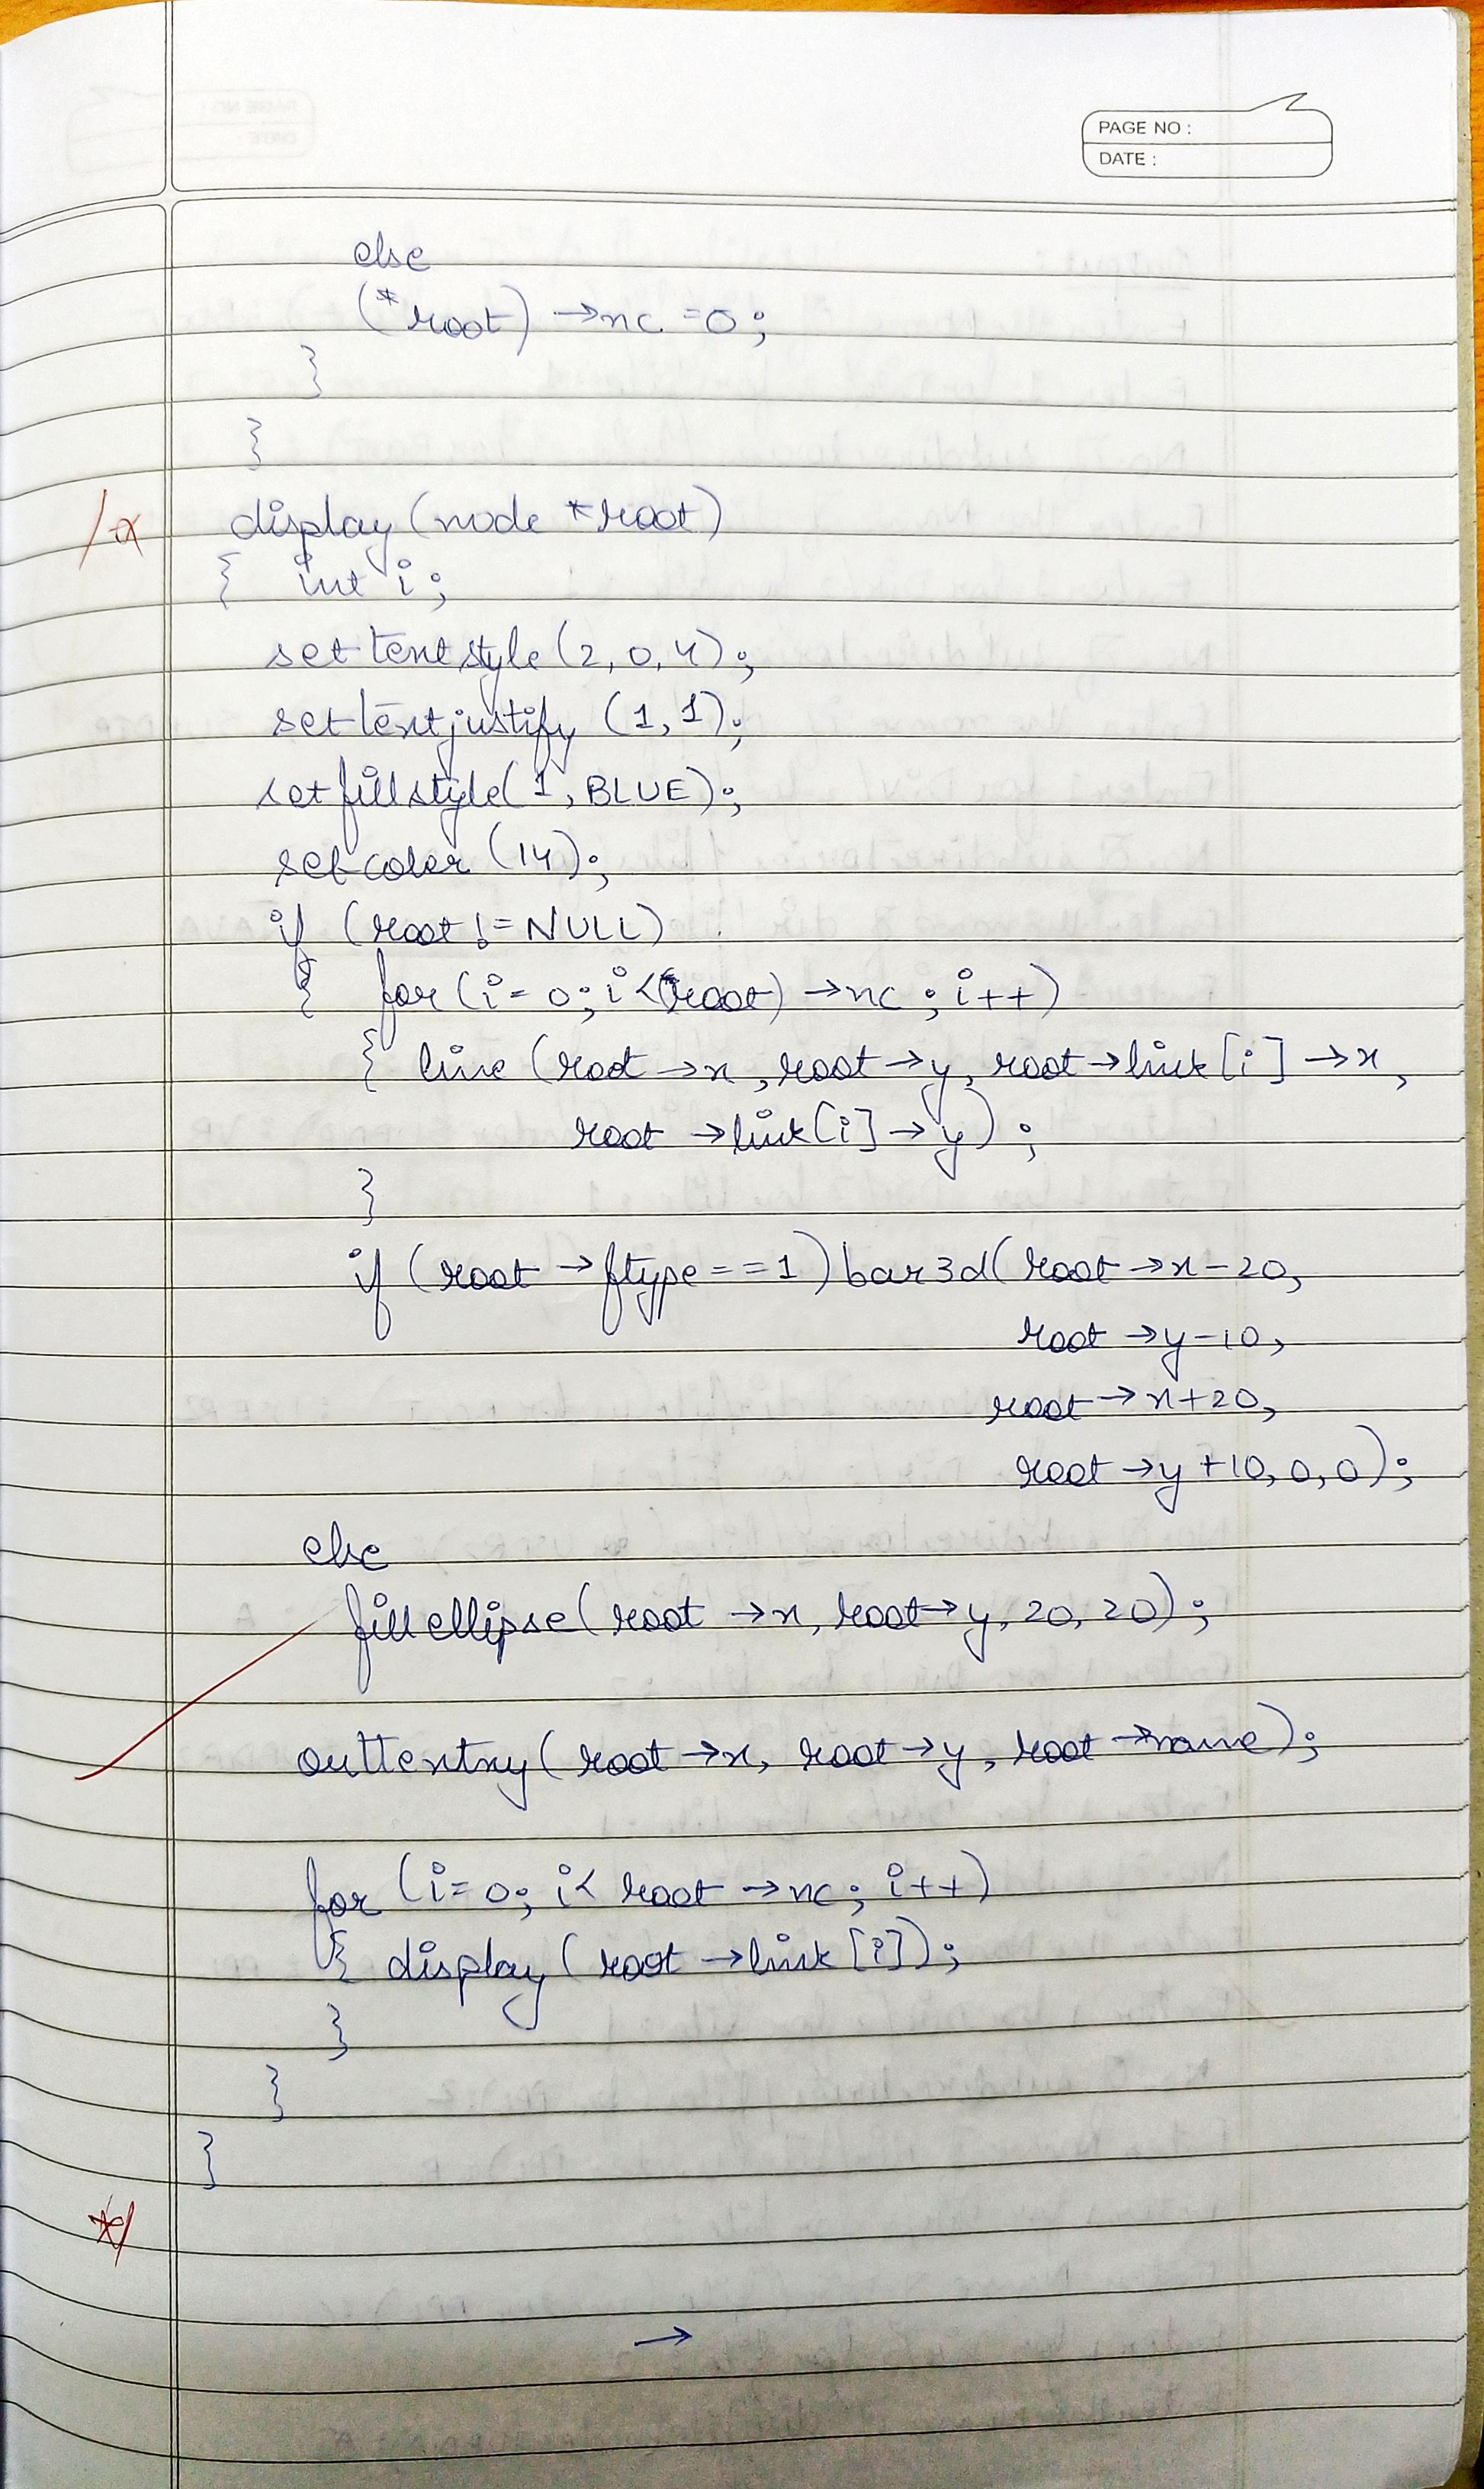 PAGE NO :
DATE :
else
(*root) →nc =0;
}
}
/* display (node *root)
{ int i;
settextstyle (2, 0, 4);
settextjustify (1, 1);
setfillstyle(1, BLUE);
setcolor (14);
if (root != NULL)
{ for (i = 0; i<(root) →nc ; i++)
{ line (root →x, root→y, root→link[i] →x,
root →link[i] →y) ;
}
if (root →ftype == 1) bar3d( root →x-20,
root →y-10,
root →x+20,
root →y +10, 0, 0);
else
fillellipse( root →x, root→y, 20, 20);
outtextxy( root →x, root →y, root →name);
for (i=0; i< root →nc; i++)
{ display ( root →link [i]);
}
}
}
*/
→